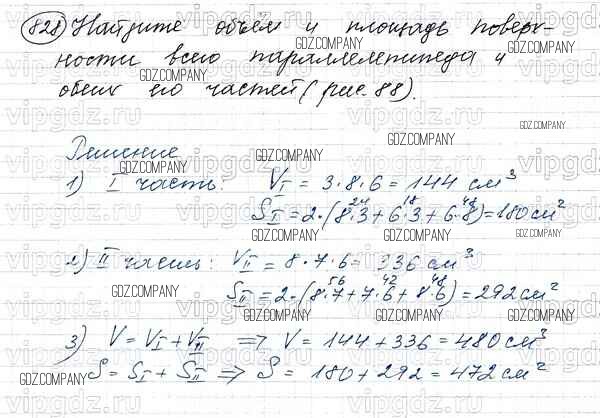 828) Найдите объём и площадь поверх-
ности всего параллелепипеда и
обеих его частей (рис 88).
Решение
1) I часть: V_I = 3·8·6 = 144 см³
24 18 48
S_I = 2·(8·3+6·3+6·8) = 180 см²
2) II часть: V_II = 8·7·6 = 336 см³
56 42 48
S_II = 2·(8·7+7·6+8·6) = 292 см²
3) V = V_I + V_II ⇒ V = 144 + 336 = 480 см³
S = S_I + S_II ⇒ S = 180 + 292 = 472 см²
GDZ.COMPANY
vipgdz.com